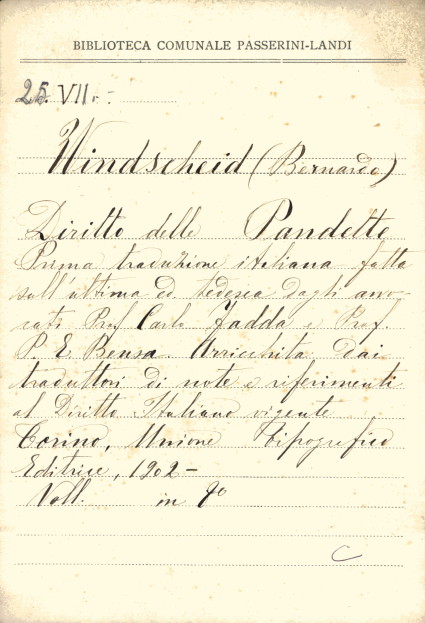 BIBLIOTECA COMUNALE PASSERINI-LANDI
25. VII.
Windscheid (Bernardo)
Diritto delle Pandette
Prima traduzione italiana fatta
sull'ultima ed. tedesca dagli avvo-
cati Prof. Carlo Fadda e Prof.
P. E. Bensa. Arricchita dai
traduttori di note e riferimenti
al Diritto Italiano vigente
Torino, Unione Tipografico
Editrice, 1902 -
Voll. in
C